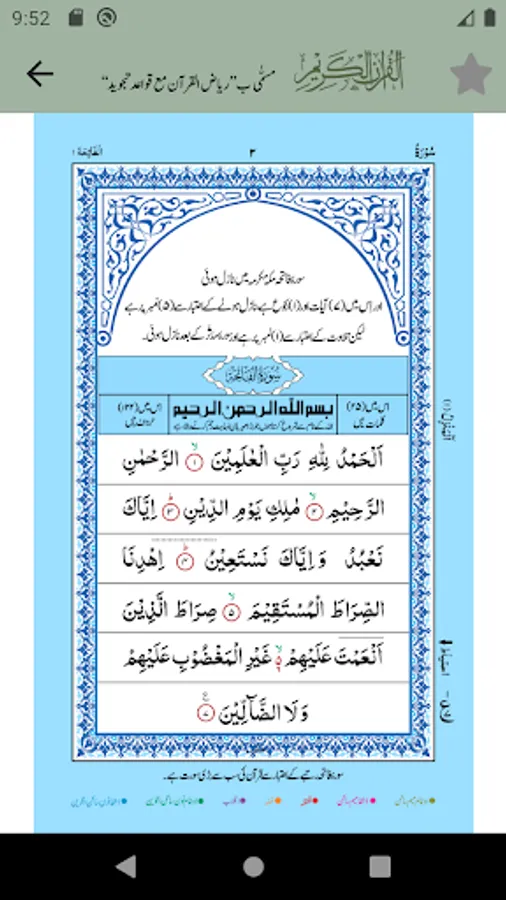 9:52
القرآن الكريم
مسمّٰی بہ "ریاض القرآن مع قواعد تجوید"
سُوْرَةُ
٢
الفاتحة ١
سورۂ فاتحہ مکۂ مکرمہ میں نازل ہوئی
اور اس میں (۷) آیات اور (۱) رکوع ہے، نازل ہونے کے اعتبار سے (۵) نمبر پر ہے
لیکن تلاوت کے اعتبار سے (۱) نمبر پر ہے اور سورۂ مدثر کے بعد نازل ہوئی۔
سُوْرَةُ الْفَاتِحَةِ
اس میں (۲۵)
کلمات ہیں
بسم الله الرحمن الرحيم
اس میں (۱۲۳)
حروف ہیں
اَلْحَمْدُ لِلّٰهِ رَبِّ الْعٰلَمِيْنَ ۙ‏ ١ الرَّحْمٰنِ
الرَّحِيْمِ ۙ‏ ٢ مٰلِكِ يَوْمِ الدِّيْنِ ؕ‏ ٣ اِيَّاكَ
نَعْبُدُ وَاِيَّاكَ نَسْتَعِيْنُ ؕ‏ ٤ اِهْدِنَا
الصِّرَاطَ الْمُسْتَقِيْمَ ۙ‏ ٥ صِرَاطَ الَّذِيْنَ
اَنْعَمْتَ عَلَيْهِمْ ۙ ٦ غَيْرِ الْمَغْضُوْبِ عَلَيْهِمْ
وَلَا الضَّآلِّيْنَ ٧
سورۂ فاتحہ رتبے کے اعتبار سے قرآن کی سب سے بڑی سورت ہے۔